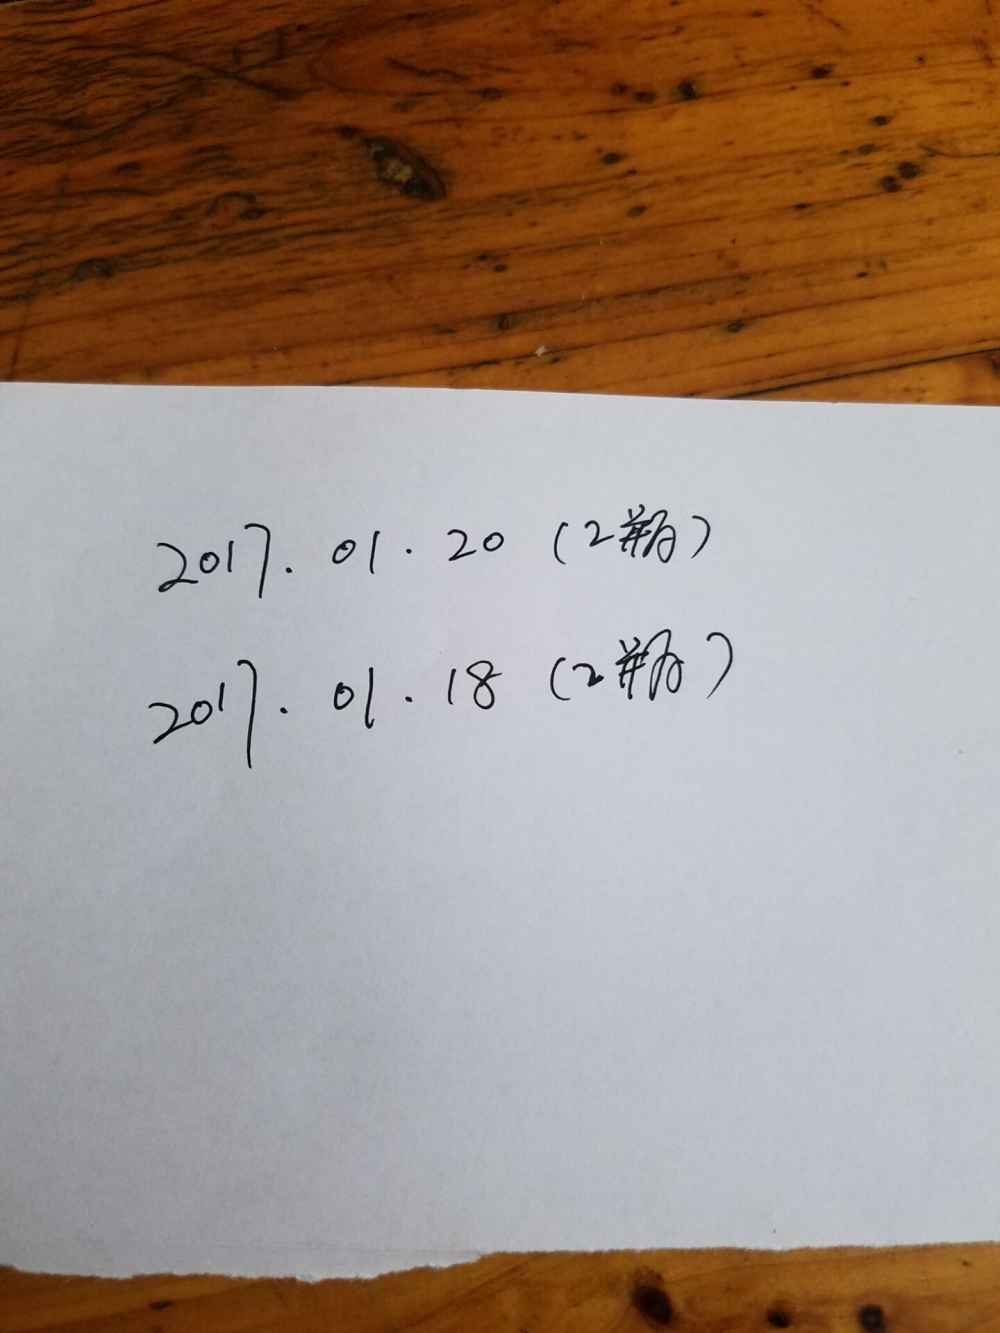 2017.01.20（2瓶）
2017.01.18（2瓶）